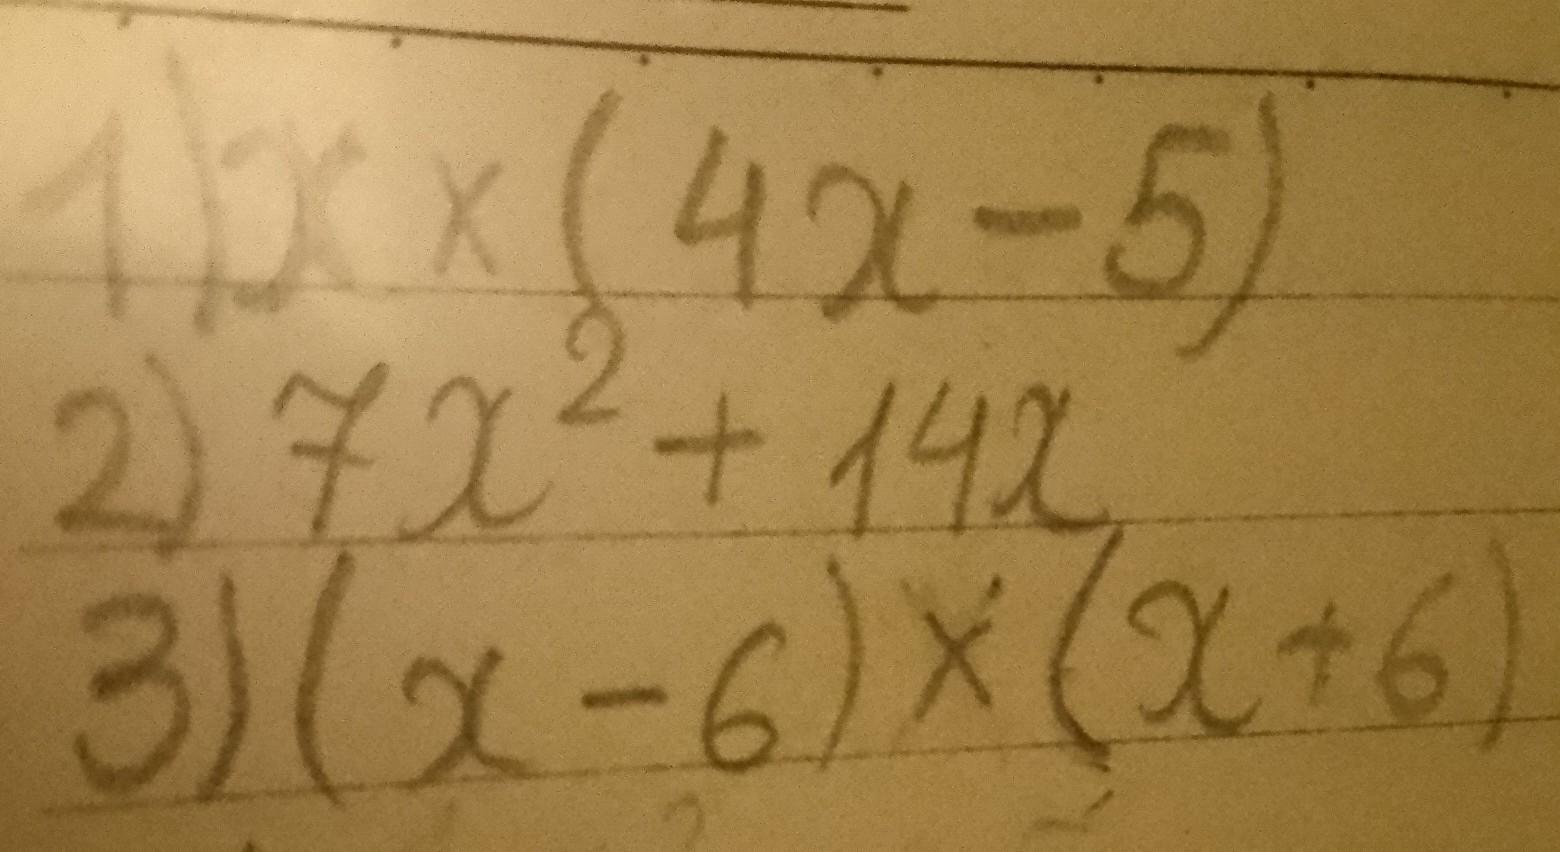 1) x × (4x - 5)
2) 7x² + 14x
3) (x - 6) × (x + 6)